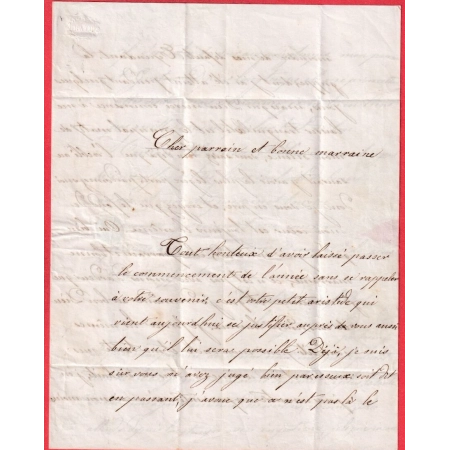 Cher parrain et bonne marraine
Tout honteux d'avoir laissé passer
le commencement de l'année sans se rappeler
à votre souvenir, c'est votre petit aristide qui
vient aujourd'hui se justifier auprès de vous aussi
bien qu'il lui sera possible Déjà, je suis
sur vous m'avez jugé bien paresseux soit dit
en passant, j'avoue que ce n'est pas là le